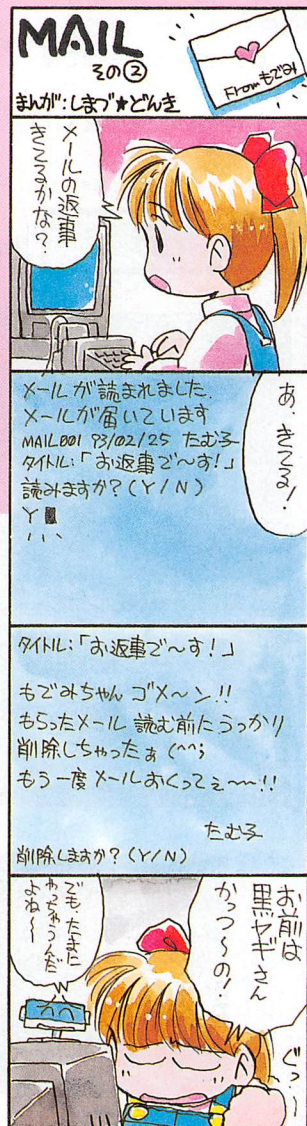 MAIL
その②
Fromもでみ
まんが:しまづ★どんき
メールの返事
きてるかな?
あ、きてる!
メールが読まれました.
メールが届いています
MAIL001 93/02/25 たむ子
タイトル:「お返事で〜す!」
読みますか?(Y/N)
Y
タイトル:「お返事で〜す!」
もでみちゃん ゴメ〜ン!!
もらったメール 読む前にうっかり
削除しちゃったぁ (^^;
もう一度メールおくってぇ〜〜!!
たむ子
削除しますか?(Y/N)
お前は
黒ヤギさん
かっつ〜の!
ぐっ
でも、たまに
やっちゃうんだ
よね〜